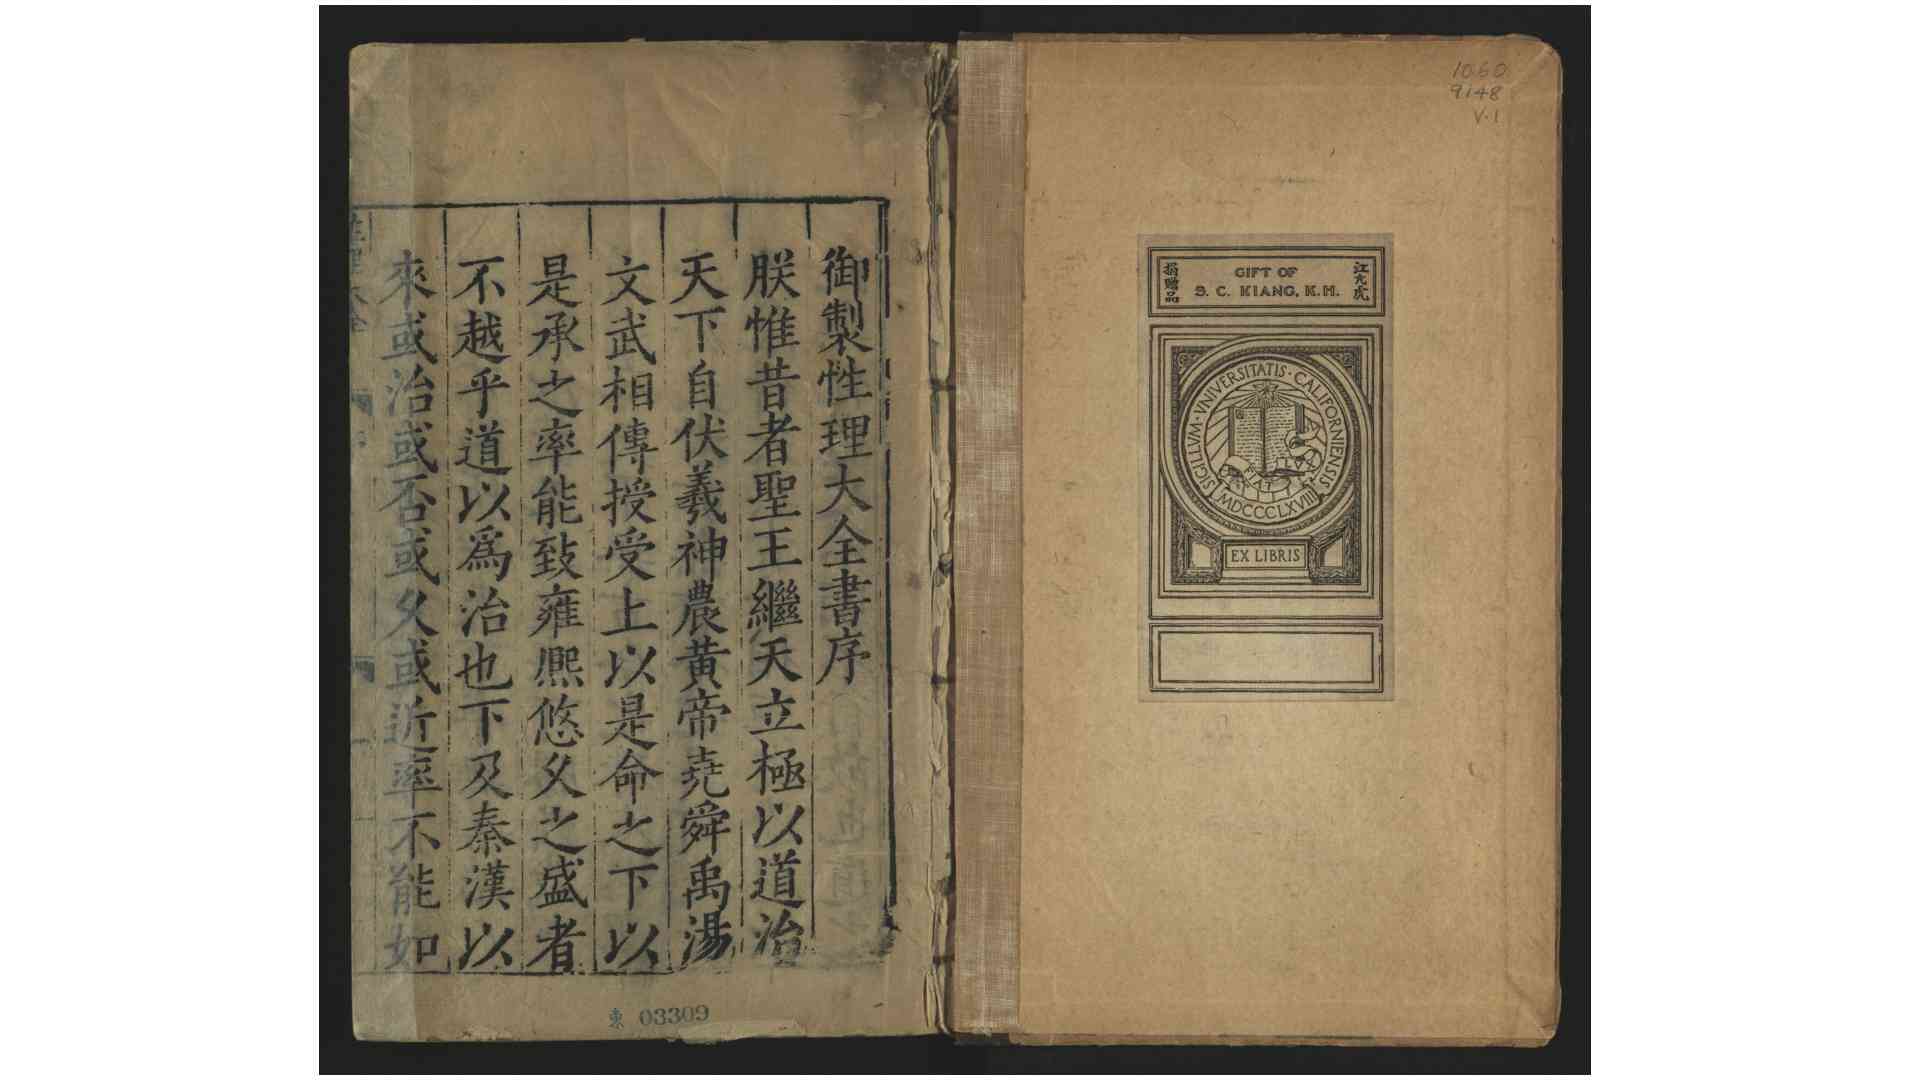 1060
9148
V.1
捐贈品
GIFT OF
S. C. KIANG, K.H.
江亢虎
SIGILLVM·VNIVERSITATIS·CALIFORNIENSIS
MDCCCLXVIII
FIAT LUX
EX LIBRIS
御製性理大全書序
朕惟昔者聖王繼天立極以道治
天下自伏羲神農黃帝堯舜禹湯
文武相傳授受上以是命之下以
是承之率能致雍熙悠久之盛者
不越乎道以爲治也下及秦漢以
來或治或否或久或近率不能如
性理大全
東 03309